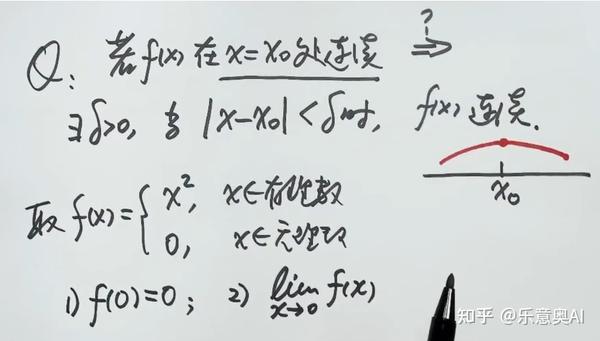 Q: 若f(x)在x=x₀处连续 ?⇒
∃δ>0, 当|x-x₀|<δ时, f(x)连续.
x₀
取f(x)={x², x∈有理数
0, x∈无理数
1) f(0)=0; 2) lim x→0 f(x)
知乎 @乐意奥AI